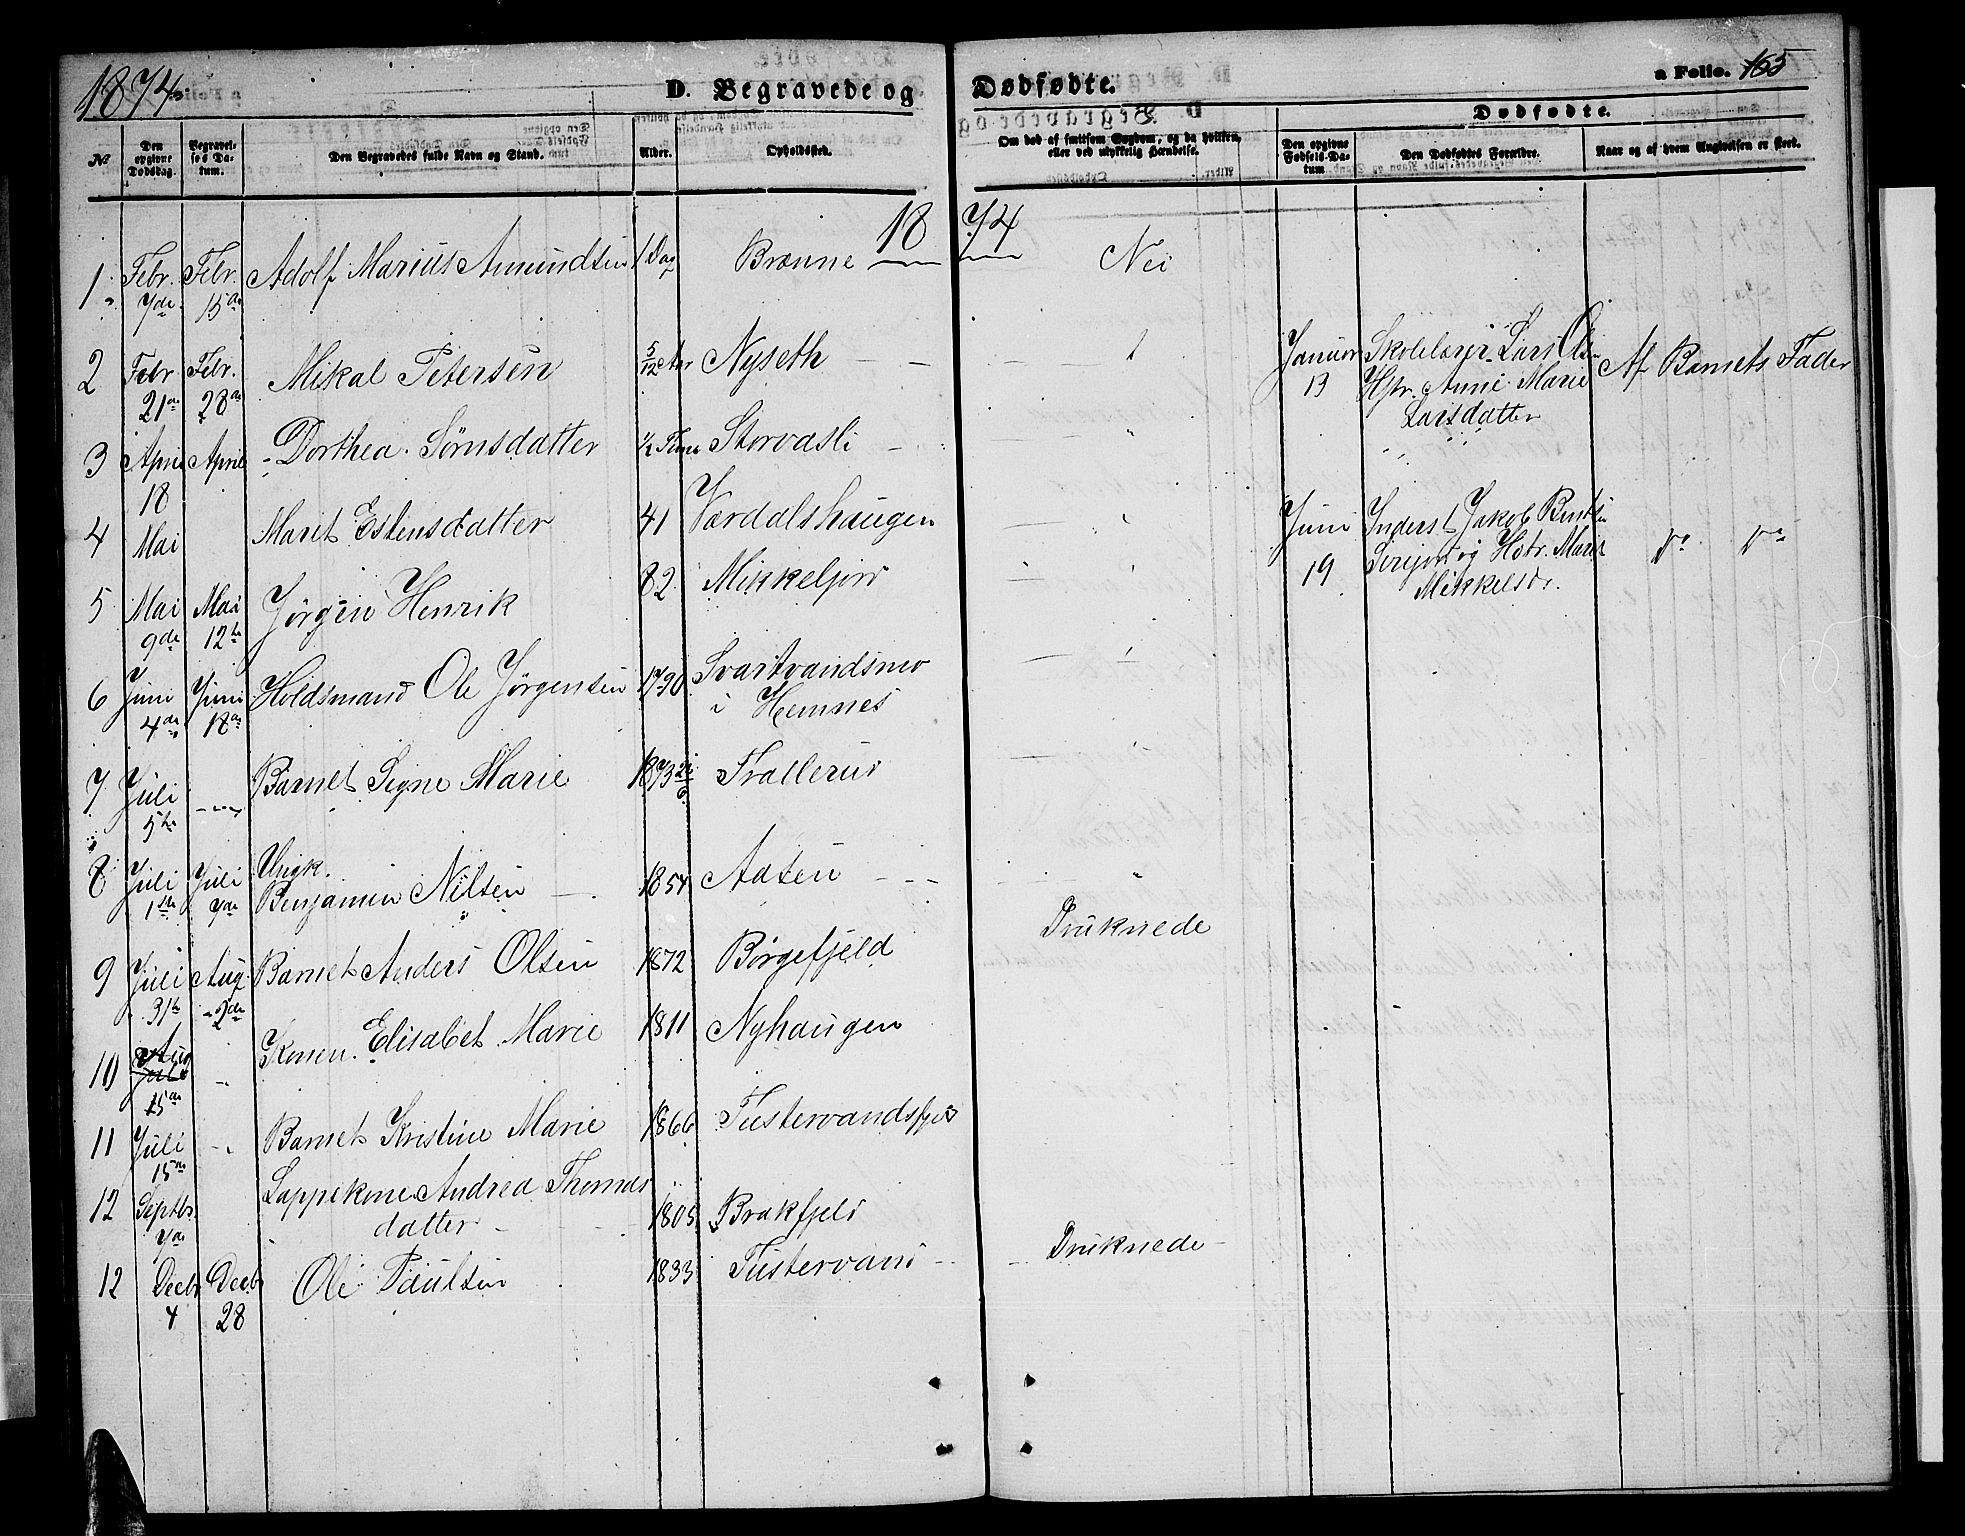 1874
D. Begravede og Dødfødte.
a Folie. 165
Dødfødte.
No.
Den opgivne Dødsdag.
Begravelses Datum.
Den Begravedes fulde Navn og Stand.
Alder.
Opholdssted.
Om død af smitsom Sygdom, og da hvilken, eller ved ulykkelig Hændelse.
Den opgivne Fødsels-Datum
Den Dødfødtes Forældre.
Naar og af hvem Angivelsen er skeet.
1874
1. Febr. 7de Febr. 15de Adolf Marius Amundsen 1 Dag Brænne Nei
2 Febr. 21de Febr. 28de Mikal Petersen 5/12 Aar Nyseth — — — "
Januar 13 Skolelærer Lars Olsen
Hstr. Anne Marie
Larsdatter
Af Barnets Fader
3 April 18 April Dorthea Sørnsdatter ½ Time Storvasli — "
4 Mai Marit Estensdatter 41 Vardalshaugen — "
Juni 19 Inderst Jakob Bentsen
og Hstr. Marit
Mikkelsdr.
do do
5 Mai 9de Mai 12te Jørgen Henrik 82 Mikkeljord — "
6 Juni 4de Juni 18de Holdsmand Ole Jørgensen 1790 Svartvandsmo
i Hemnes — "
7 Juli 5te — Barnet Signe Marie 1873 Trallerud — "
8 Juli 1ste Juli 7de Ungk.
Benjamin Nilsen — 1854 Aasen — — — "
Druknede
9 Juli 31te Aug. 2de Barnet Anders Olsen 1872 Børgefjeld
10 Aug 15de " Konen Elisabet Marie 1811 Nyhaugen
11 Juli 15de " Barnet Kristine Marie 1866 Tustervandsfjeld
12 Septbr. 7de Lappekone Andrea Thomas
datter — 1805 Brakfjeld
12 Decbr 4 Decbr 28 Ole Paulsen 1833 Tustervand — Druknede —